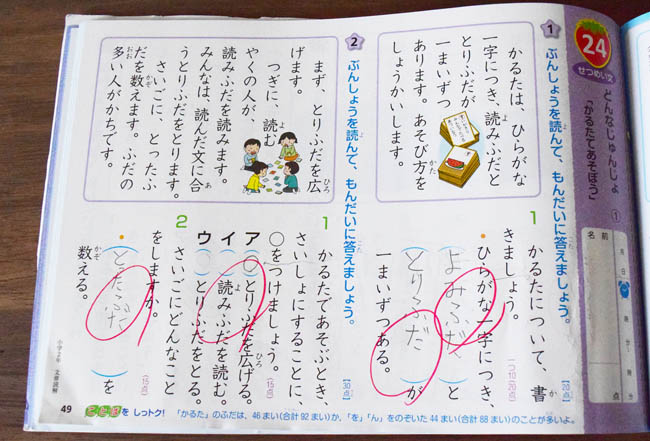 24
せつめい文
どんなじゅんじょ ①
「かるたであそぼう」
名前
月 日
時 分
時 分
点
1
ぶんしょうを読んで、もんだいに答えましょう。
【20点】
かるたは、ひらがな
一字につき、読みふだと
とりふだが
一まいずつ
あります。あそび方を
しょうかいします。
1
かるたについて、書
きましょう。
一つ10【20点】
ひらがな一字につき、
(よみふだ)と
(とりふだ)が
一まいずつある。
2
ぶんしょうを読んで、もんだいに答えましょう。
【30点】
まず、とりふだを広
げます。
つぎに、読む
やくの人が、
読みふだを読みます。
みんなは、読んだ文に合
うとりふだをとります。
さいごに、とったふ
だを数えます。ふだの
多い人がかちです。
1
かるたであそぶとき、
さいしょにすることに、
○をつけましょう。
(15点)
ア(○)とりふだを広げる。
イ( )読みふだを読む。
ウ( )とりふだをとる。
2
さいごにどんなこと
をしますか。
(15点)
(とったふだ)を
数える。
小学2年 文章読解
49
ことばをしっトク! 「かるた」のふだは、46まい(合計92まい)か、「を」「ん」をのぞいた44まい(合計88まい)のことが多いよ。